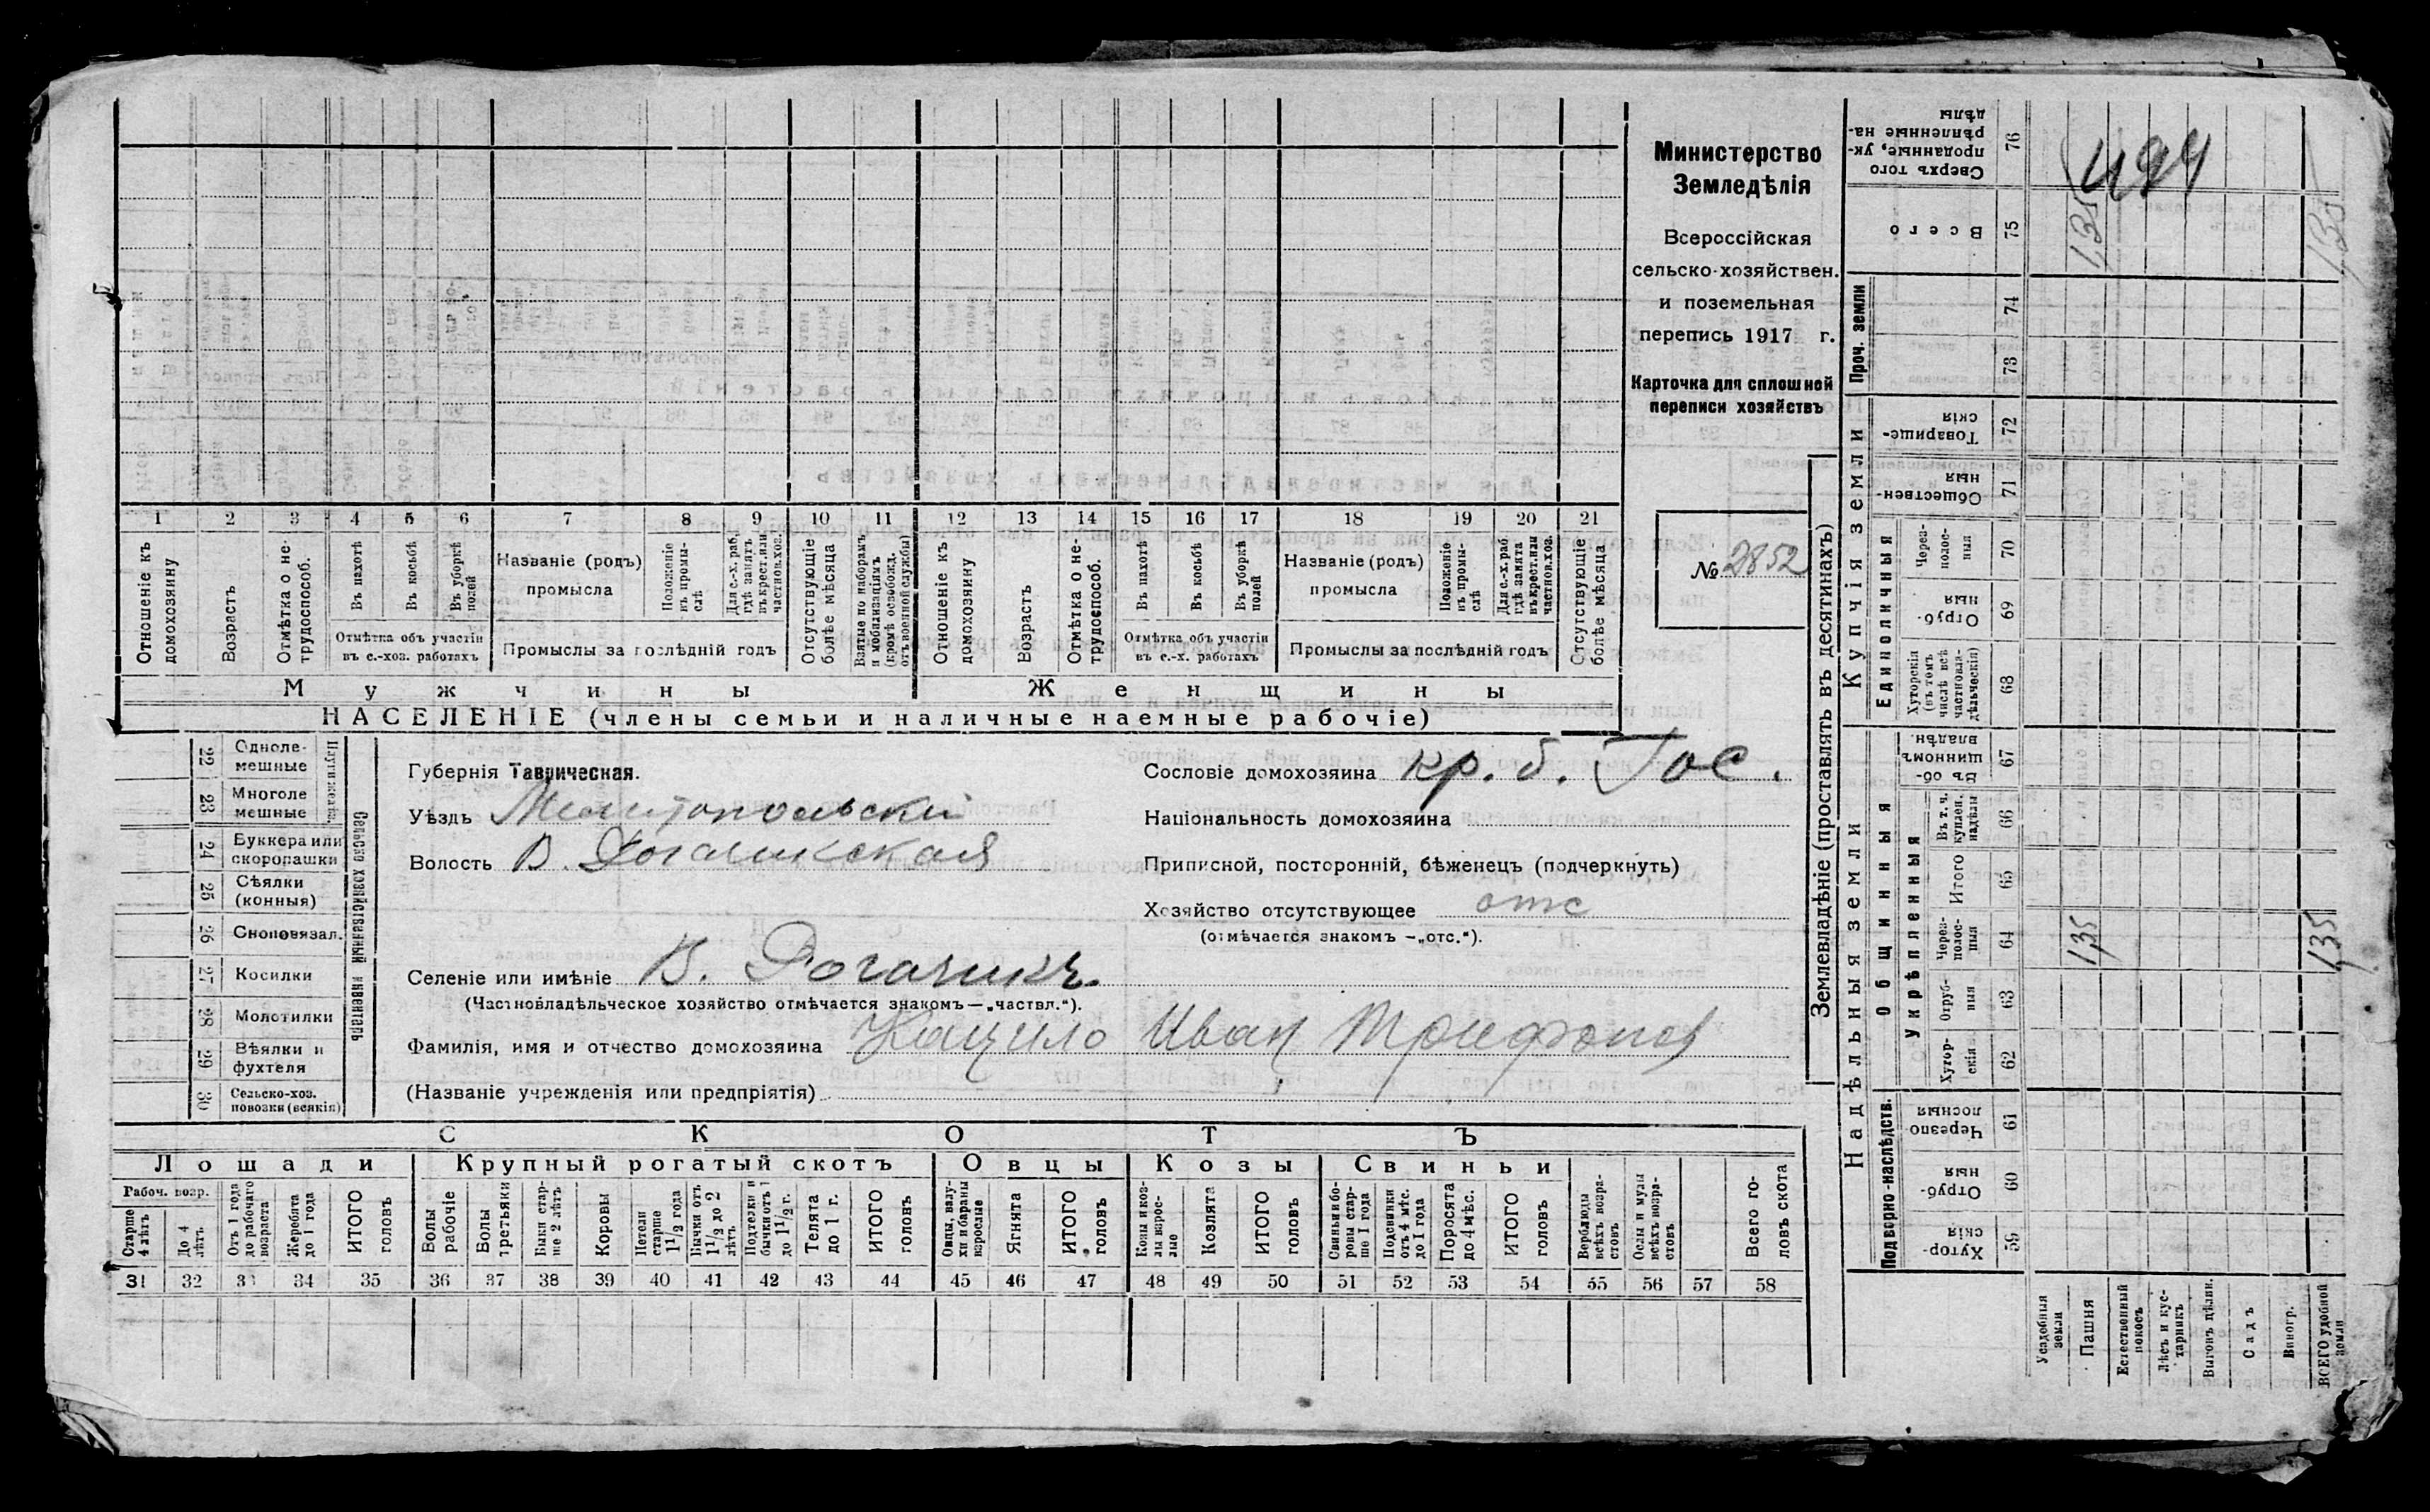 Министерство
Земледѣлія
Всероссійская
сельско-хозяйствен.
и поземельная
перепись 1917 г.
Карточка для сплошной
переписи хозяйствъ
№ 2852
1 2 3 4 5 6 7 8 9 10 11 12 13 14 15 16 17 18 19 20 21
Отношеніе къ домохозяину
Возрастъ
Отмѣтка о не-трудоспособ.
Въ пахотѣ
Въ косьбѣ
Въ уборкѣ полей
Отмѣтка объ участіи въ с.-хоз. работахъ
Названіе (родъ) промысла
Положеніе въ промы-слѣ
Для с.-х. раб. гдѣ занятъ въ крест. или частнов. хоз.
Промыслы за послѣдній годъ
Отсутствующіе болѣе мѣсяца
Взятые по наборамъ и мобилизаціямъ (кромѣ освобожд. отъ военной службы)
Отношеніе къ домохозяину
Возрастъ
Отмѣтка о не-трудоспособ.
Въ пахотѣ
Въ косьбѣ
Въ уборкѣ полей
Отмѣтка объ участіи въ с.-х. работахъ
Названіе (родъ) промысла
Положеніе въ промы-слѣ
Для с.-х. раб. гдѣ занята въ крест. или частнов. хоз.
Промыслы за послѣдній годъ
Отсутствующіе болѣе мѣсяца
Мужчины Женщины
НАСЕЛЕНІЕ (члены семьи и наличные наемные рабочіе)
22 Однолемешные
23 Многолемешные
24 Буккера или скоропашки
25 Сѣялки (конныя)
26 Сноповязал.
27 Косилки
28 Молотилки
29 Вѣялки и фухтеля
30 Сельско-хоз. повозки (всякія)
Сельско хозяйственный инвентарь
Губернія Таврическая.
Уѣздъ Мелитопольскій
Волость В. Рогачикская
Селеніе или имѣніе В. Рогачикъ.
(Частновладѣльческое хозяйство отмѣчается знакомъ — „частвл.“).
Фамилія, имя и отчество домохозяина Кацило Иван Трифонов
(Названіе учрежденія или предпріятія)
Сословіе домохозяина кр. б. Гос.
Національность домохозяина
Приписной, посторонній, бѣженецъ (подчеркнуть)
Хозяйство отсутствующее отс
(отмѣчается знакомъ — „отс.“).
СКОТЪ
Лошади Крупный рогатый скотъ Овцы Козы Свиньи
Рабоч. возр.
Старше 4 лѣтъ
До 4 лѣтъ.
Отъ 1 года до рабочаго возраста
Жеребята до 1 года
ИТОГО головъ
Волы рабочіе
Волы третьяки
Быки стар-ше 2 лѣтъ
Коровы
Нетели старше 1 1/2 года
Бычки отъ 1 1/2 до 2 лѣтъ
Подтелки и бычки отъ 1 до 1 1/2 г.
Телята до 1 г.
ИТОГО головъ
Овцы, валу-хи и бараны взрослые
Ягнята
ИТОГО головъ
Козы и коз-лы взрос-лые
Козлята
ИТОГО головъ
Свиньи и бо-ровы стар-ше 1 года
Подсвинки отъ 4 мѣс. до 1 года
Поросята до 4 мѣс.
ИТОГО головъ
Верблюды всѣхъ возра-стовъ
Ослы и мулы всѣхъ возра-стовъ
Всего го-ловъ скота
31 32 33 34 35 36 37 38 39 40 41 42 43 44 45 46 47 48 49 50 51 52 53 54 55 56 57 58
Землевладѣніе (проставлять въ десятинахъ)
Надѣльныя земли Купчія земли Проч. земли
Подворно-наслѣдств.
Общинныя
Укрѣпленныя
Единоличныя
Хутор-скія 59
Отруб-ныя 60
Черезпо лосныя 61
Хутор-скія 62
Отруб-ныя 63
Через-полос-ныя 64
Итого 65
Въ т. ч. куплен. надѣлы 66
Въ об-щинномъ владѣн. 67
Хуторскія (въ томъ числѣ всѣ частновла-дѣльческія) 68
Отруб-ныя 69
Через-полос-ныя 70
Обществен-ныя 71
Товарище-скія 72
73
74
Всего 75
Сверхъ того проданные, ук-рѣпленные на-дѣлы 76
Усадебныя земли
Пашня 135 135
Естественный покосъ
Лѣсъ и кус-тарникъ
Выгонъ цѣлин.
Садъ
Виногр.
ВСЕГО удобной земли 135 135
494